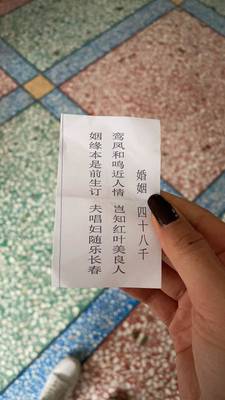 婚姻 四十八千
鸾凤和鸣近人情 岂知红叶美良人
姻缘本是前生订 夫唱妇随乐长春